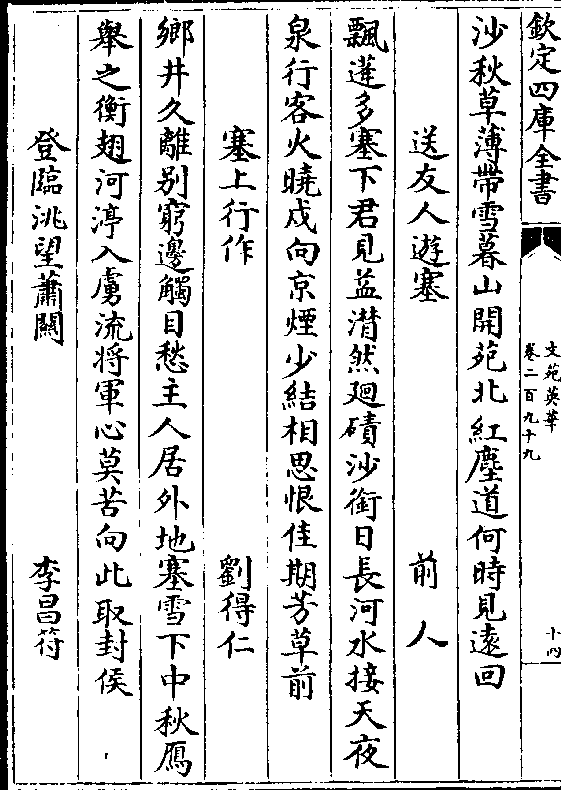 欽定四庫全書
文苑英華
卷二百九十九
十四
沙秋草薄帶雪暮山開苑北紅塵道何時見遠回
送友人遊塞 前人
飄蓬多塞下君見益潸然廻磧沙銜日長河水接天夜
泉行客火曉戍向京煙少結相思恨佳期芳草前
塞上行作 劉得仁
鄉井久離别窮邊觸目愁主人居外地塞雪下中秋鴈
舉之衡翅河渟入虜流將軍心莫苦向此取封侯
登臨洮望蕭關 李昌符